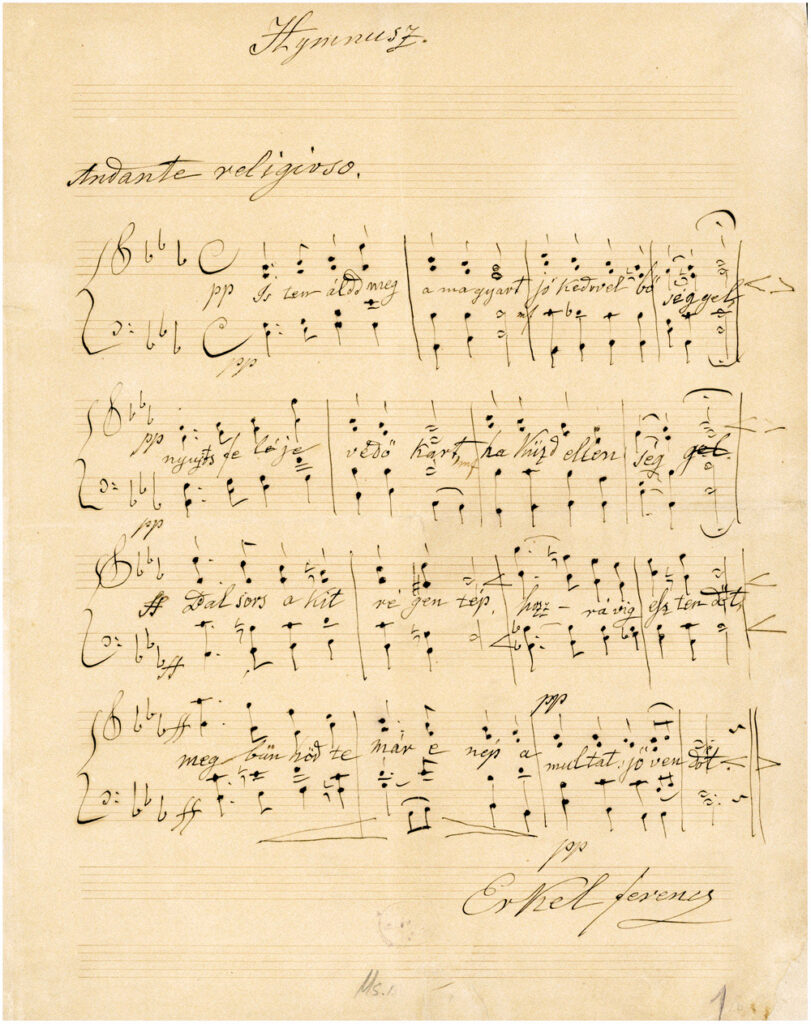 Hymnusz.
Andante religioso.
pp Is ten áldd meg a magyart jó kedvvel bő séggel
mf
pp
pp nyujts fe léje védő kart mf ha küzd ellen ség gel.
pp
ff Bal sors a kit ré gen tép, hoz - rá víg esz ten dőt,
ff
pp
ff meg bűn hőd te már e nép a multat s jöven dőt
ff
pp
Erkel ferencz
Ms. 1
1